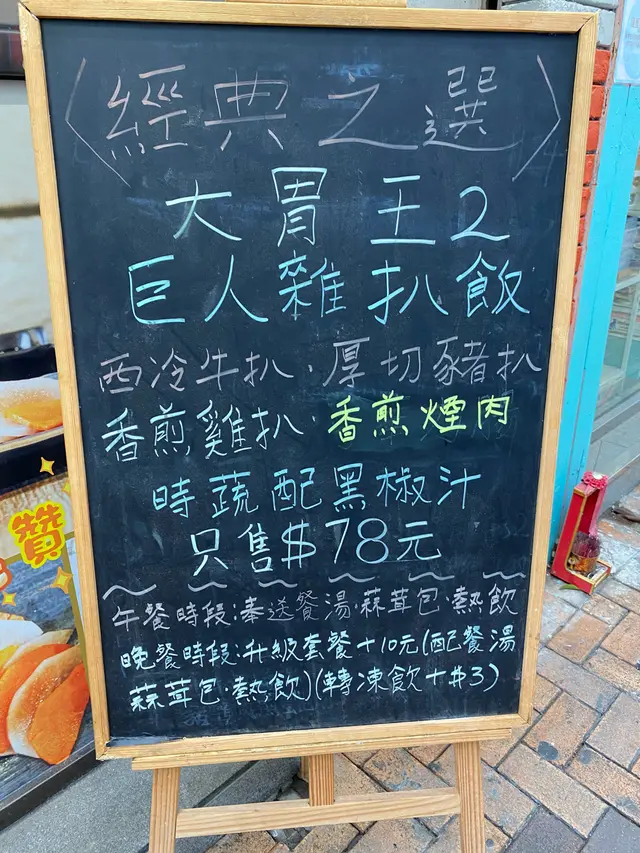 〈經典之選〉
大胃王2
巨人雜扒飯
西冷牛扒·厚切豬扒
香煎雞扒·香煎煙肉
時蔬配黑椒汁
只售$78元
午餐時段:奉送餐湯·蒜茸包·熱飲
晚餐時段:升級套餐+10元(配餐湯
蒜茸包·熱飲)(轉凍飲+$3)
讚